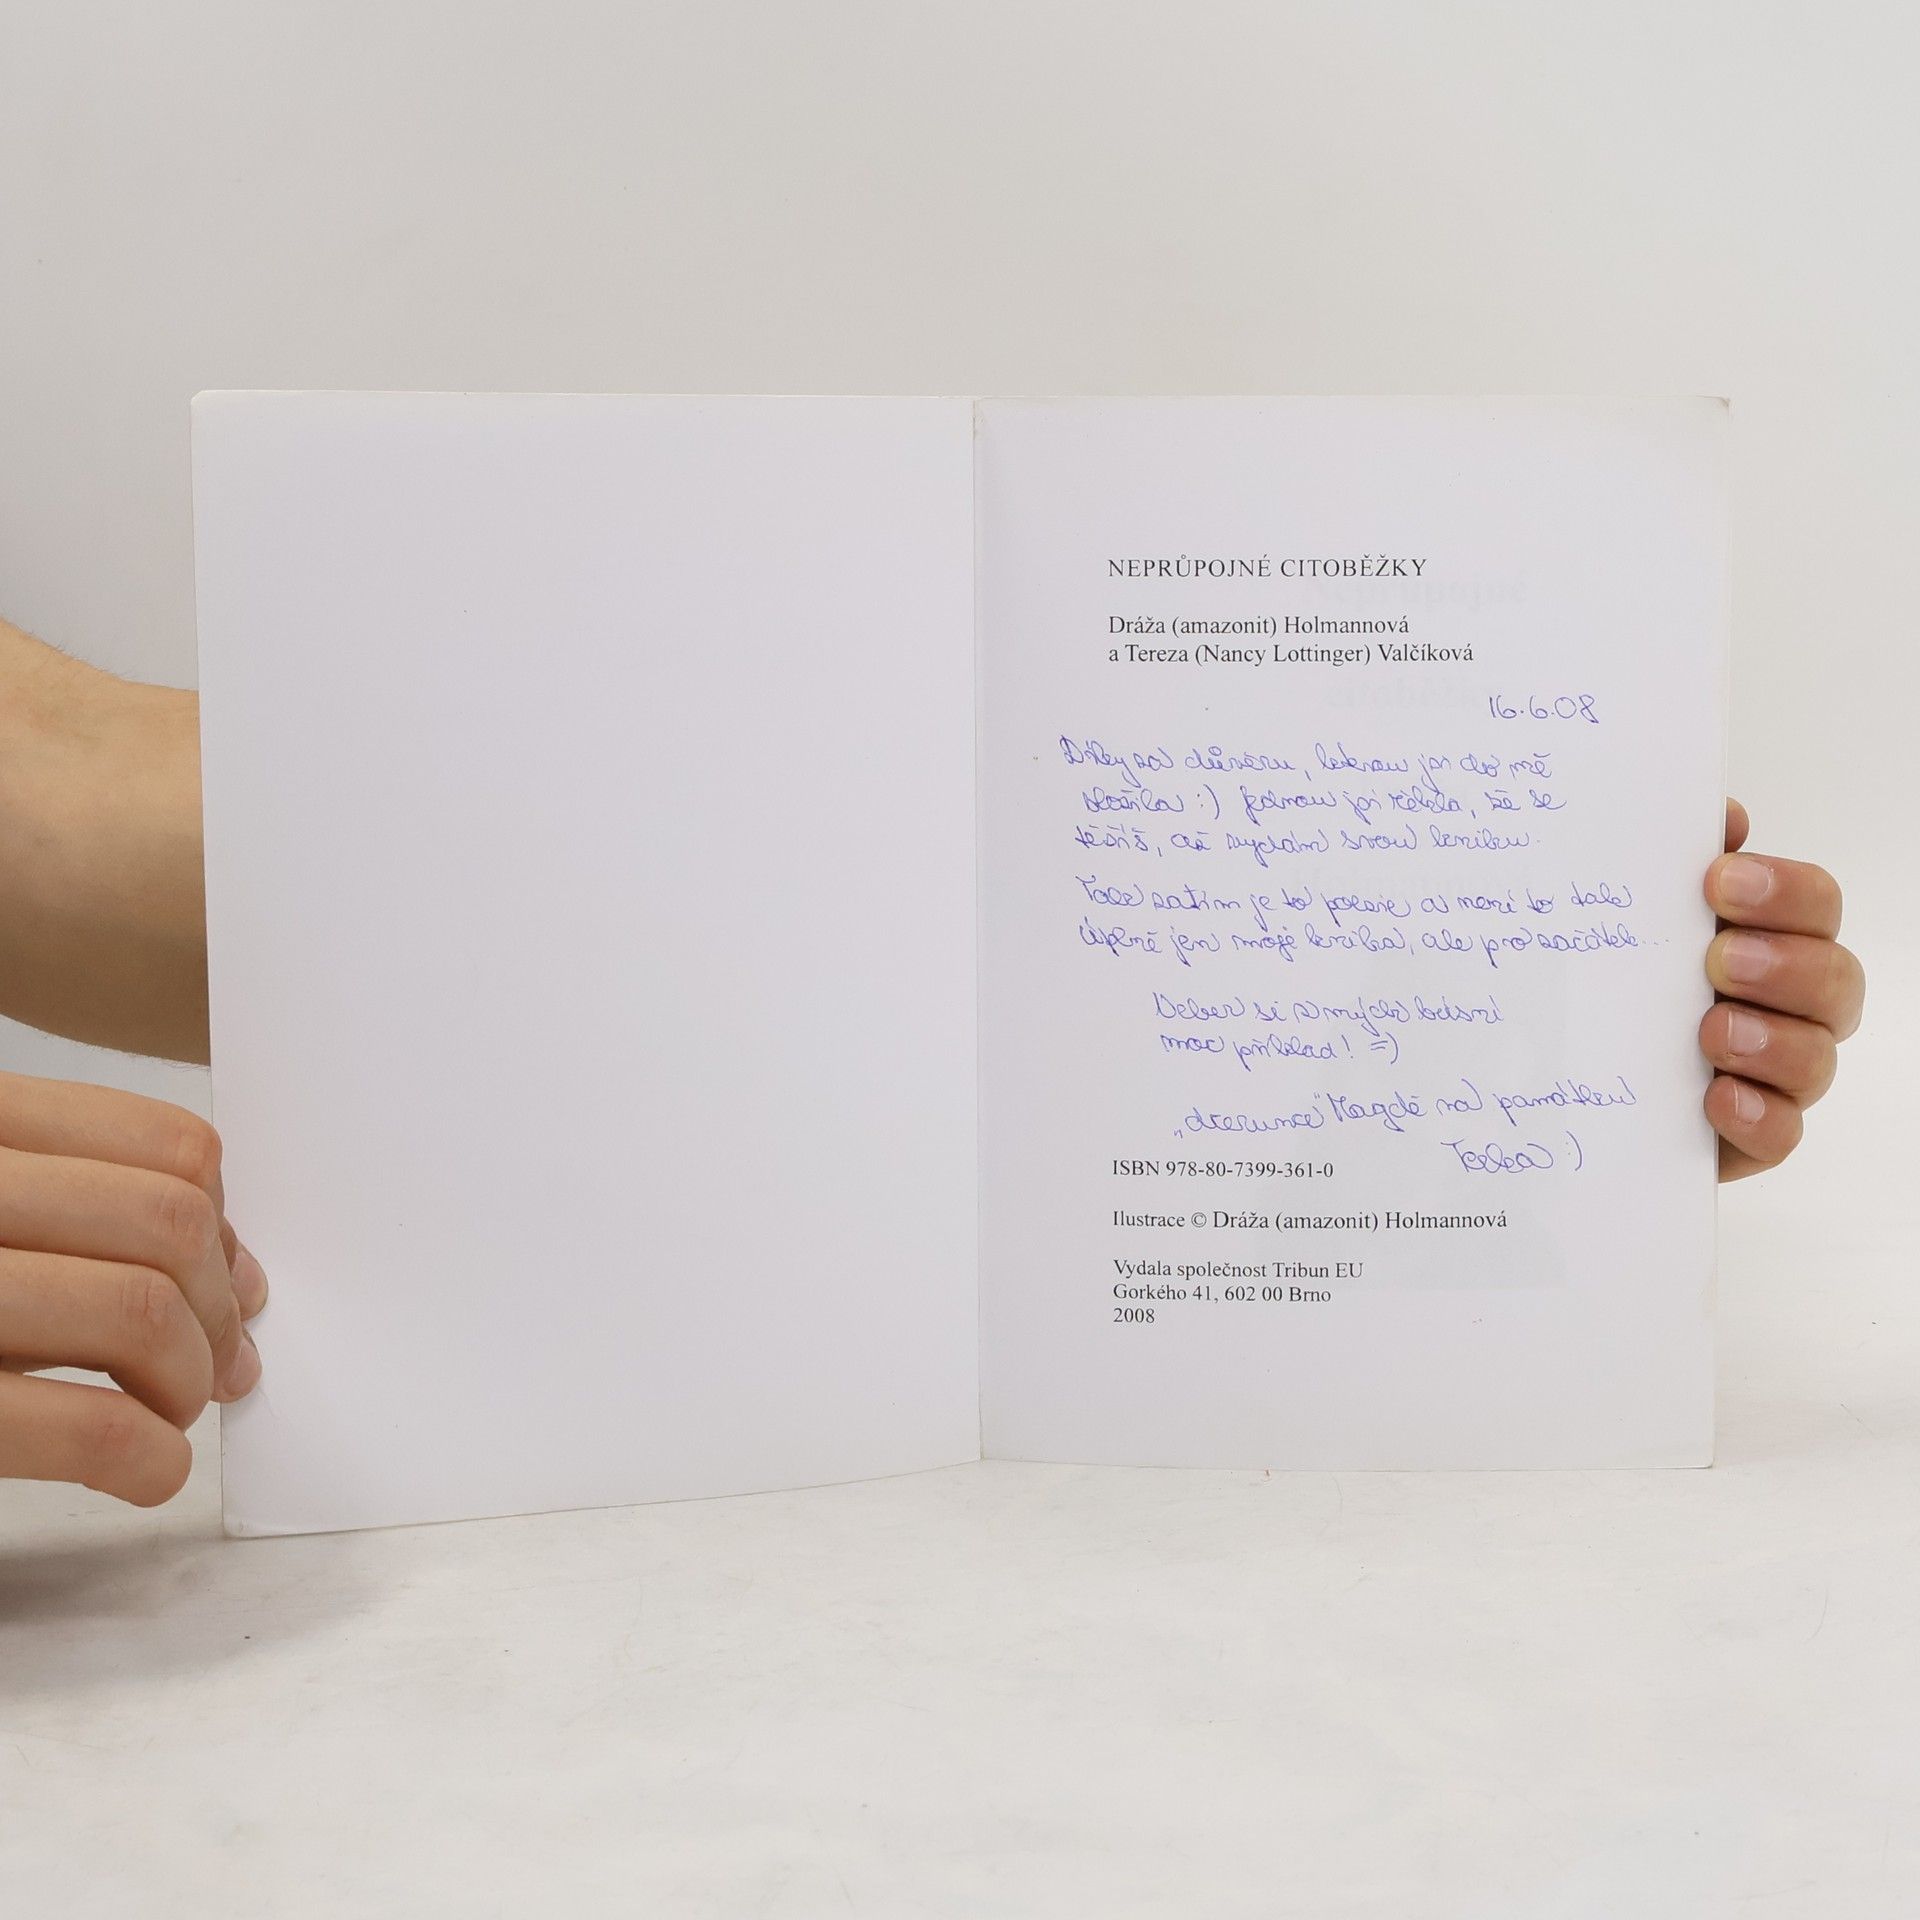 NEPRŮPOJNÉ CITOBĚŽKY
Dráža (amazonit) Holmannová
a Tereza (Nancy Lottinger) Valčíková
16.6.08
Díky za důvěru, kterou jsi do mě
vložila :) Jednou jsi řekla, že se
těšíš, až vydám svou knihu.
Tohle zatím je to poezie a není to tak
úplně jen moje kniha, ale pro začátek...
Neber si z mých básní
moc příklad! =)
„dcerunce" Magdě na památku
:)
ISBN 978-80-7399-361-0
Ilustrace © Dráža (amazonit) Holmannová
Vydala společnost Tribun EU
Gorkého 41, 602 00 Brno
2008